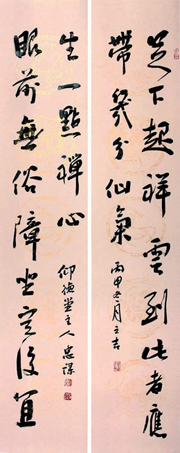 足下起祥雲到此者應
帶幾分仙氣
丙申冬月立吉
眼前無俗障坐定後宜
生一點禪心
仰德堂主人忠謀